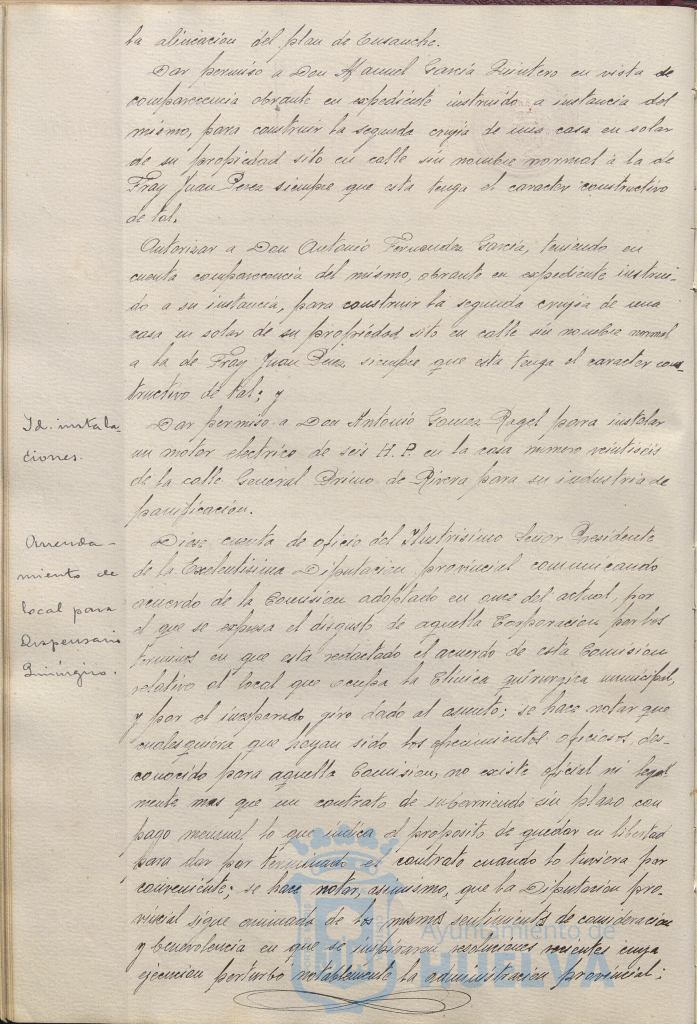 la alineacion del plan de Ensanche.
Dar permiso a Don Manuel García Quintero en vista de
comparecencia obrante en expediente instruido a instancia del
mismo, para construir la segunda crujia de una casa en solar
de su propiedad sito en calle sin nombre normal á la de
Fray Juan Perez siempre que esta tenga el caracter constructivo
de tal.
Autorizar a Don Antonio Fernandez García, teniendo en
cuenta comparecencia del mismo, obrante en expediente instrui-
do a su instancia, para construir la segunda crujia de una
casa en solar de su propiedad sito en calle sin nombre normal
a la de Fray Juan Perez, siempre que esta tenga el caracter cons-
tructivo de tal; y
Id. instala-
ciones.
Dar permiso a Don Antonio Gomez Ragel para instalar
un motor electrico de seis H.P. en la casa número veintiseis
de la calle General Primo de Rivera para su industria de
panificación.
Arrenda-
miento de
local para
Dispensario
Quirúrgico.
Diose cuenta de oficio del Ilustrisimo Señor Presidente
de la Excelentisima Diputacion provincial comunicando
acuerdo de la Comision adoptado en once del actual, por
el que se expresa el disgusto de aquella Corporacion por los
terminos en que esta redactado el acuerdo de esta Comision
relativo al local que ocupa la Clinica quirurgica municipal,
y por el inesperado giro dado al asunto; se hace notar que
cualesquiera que hayan sido los ofrecimientos oficiosos, des-
conocido para aquella Comision, no existe oficial ni legal
mente mas que un contrato de subarriendo sin plazo con
pago mensual lo que indica el proposito de quedar en libertad
para dar por terminado el contrato cuando lo tuviera por
conveniente; se hace notar, asimismo, que la Diputacion pro-
vincial sigue animada de los mismos sentimientos de consideracion
y benevolencia en que se inspiraron resoluciones recientes cuya
ejecucion perturbó notablemente la administracion provincial;
Ayuntamiento de
HUELVA